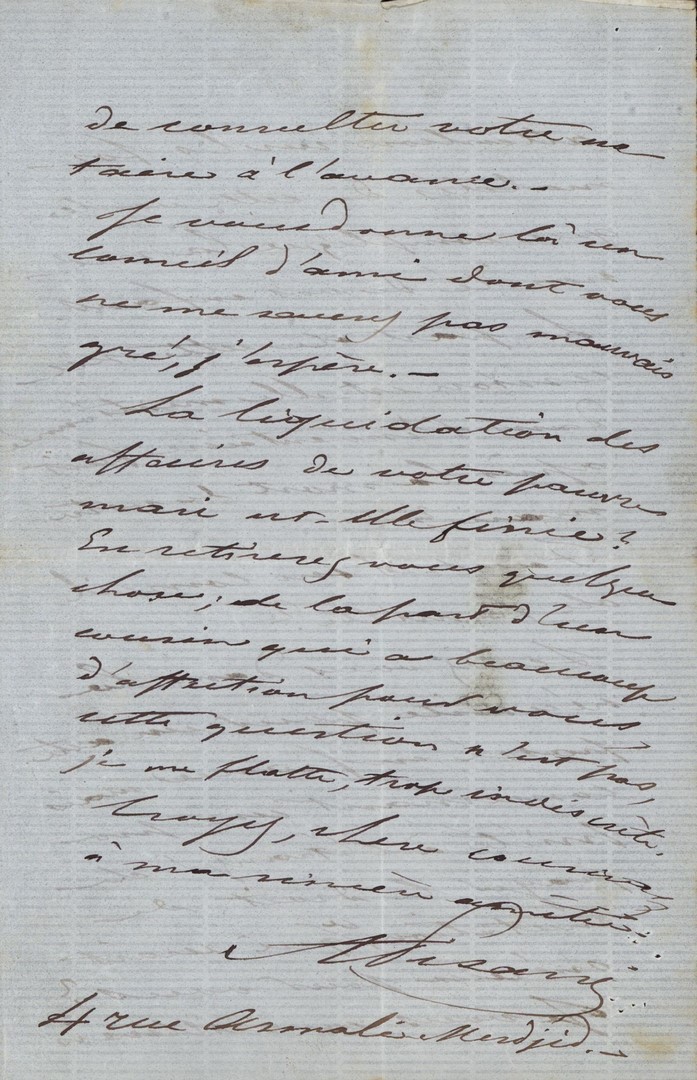 de consulter votre no
taire à l'avance. -
Je vous donne là un
conseil d'ami dont vous
ne me saurez pas mauvais
gré, j'espère. -
La liquidation des
affaires de votre pauvre
mari est-elle finie?
En retirerez vous quelque
chose; de la part d'un
cousin qui a beaucoup
d'affection pour vous
cette question n'est pas,
je me flatte, trop indiscrète.
Croyez, chère cousine,
à ma sincère amitié.
4 rue Asmali Merdjid. -